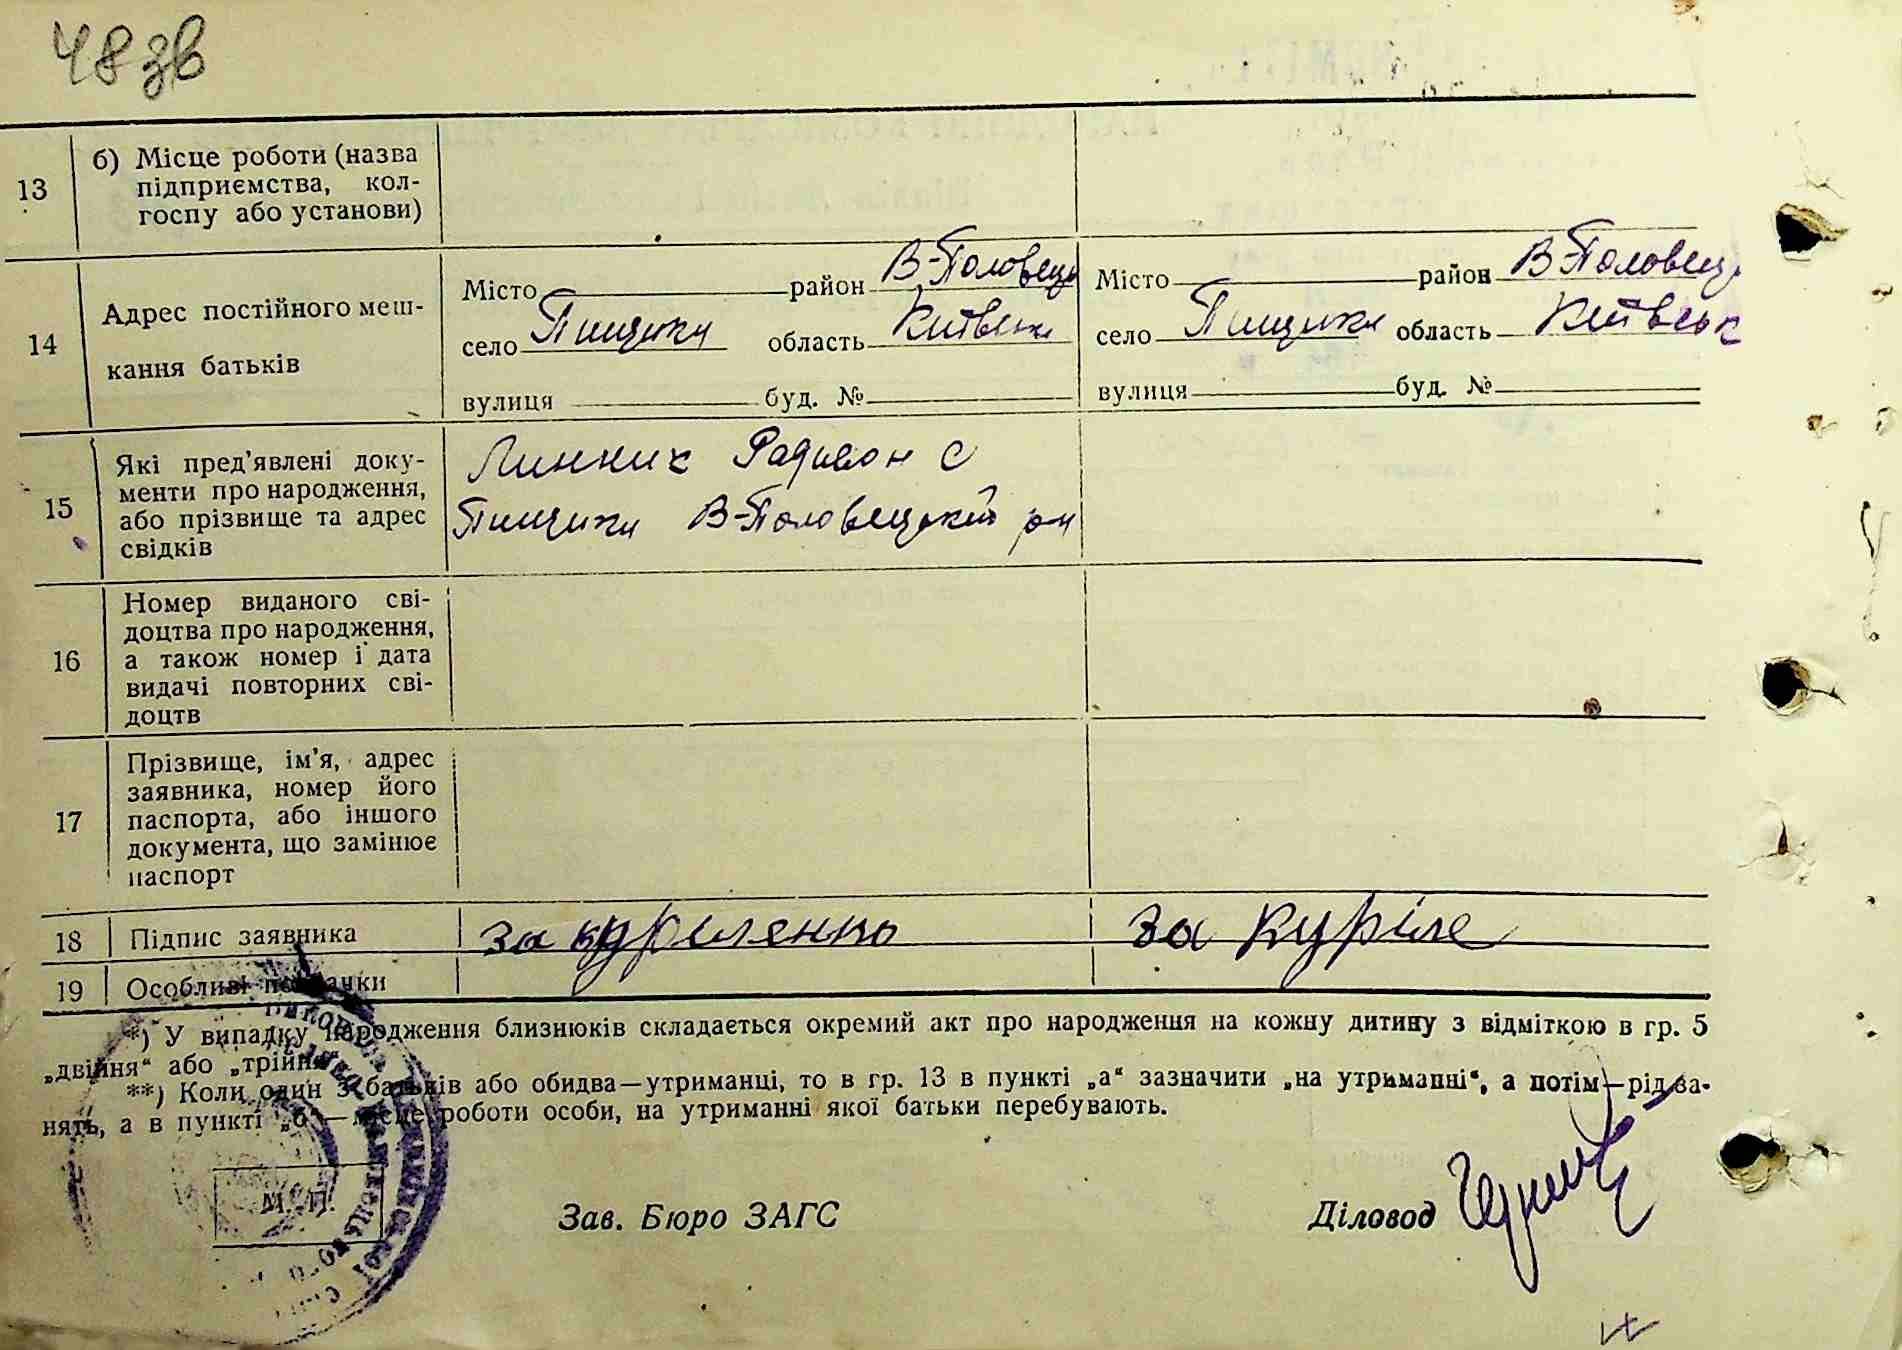 48 зв
13
б) Місце роботи (назва
підприємства, кол-
госпу або установи)
14
Адрес постійного меш-
кання батьків
Місто район В-Половецьк
село Пищики область Київськ
вулиця буд. №
Місто район В-Половецьк
село Пищики область Київськ
вулиця буд. №
15
Які пред'явлені доку-
менти про народження,
або прізвище та адрес
свідків
Линник Радион с
Пищики В-Половецький р-н
16
Номер виданого сві-
доцтва про народження,
а також номер і дата
видачі повторних сві-
доцтв
17
Прізвище, ім'я, адрес
заявника, номер його
паспорта, або іншого
документа, що замінює
паспорт
18
Підпис заявника
за куриленко
за Куріле
19
Особливі позначки
*) У випадку народження близнюків складається окремий акт про народження на кожну дитину з відміткою в гр. 5
„двійня“ або „трійня“.
**) Коли один з батьків або обидва—утриманці, то в гр. 13 в пункті „а“ зазначити „на утриманні“, а потім—рід за-
нять, а в пункті „б“—місце роботи особи, на утриманні якої батьки перебувають.
М. П.
Зав. Бюро ЗАГС
Діловод